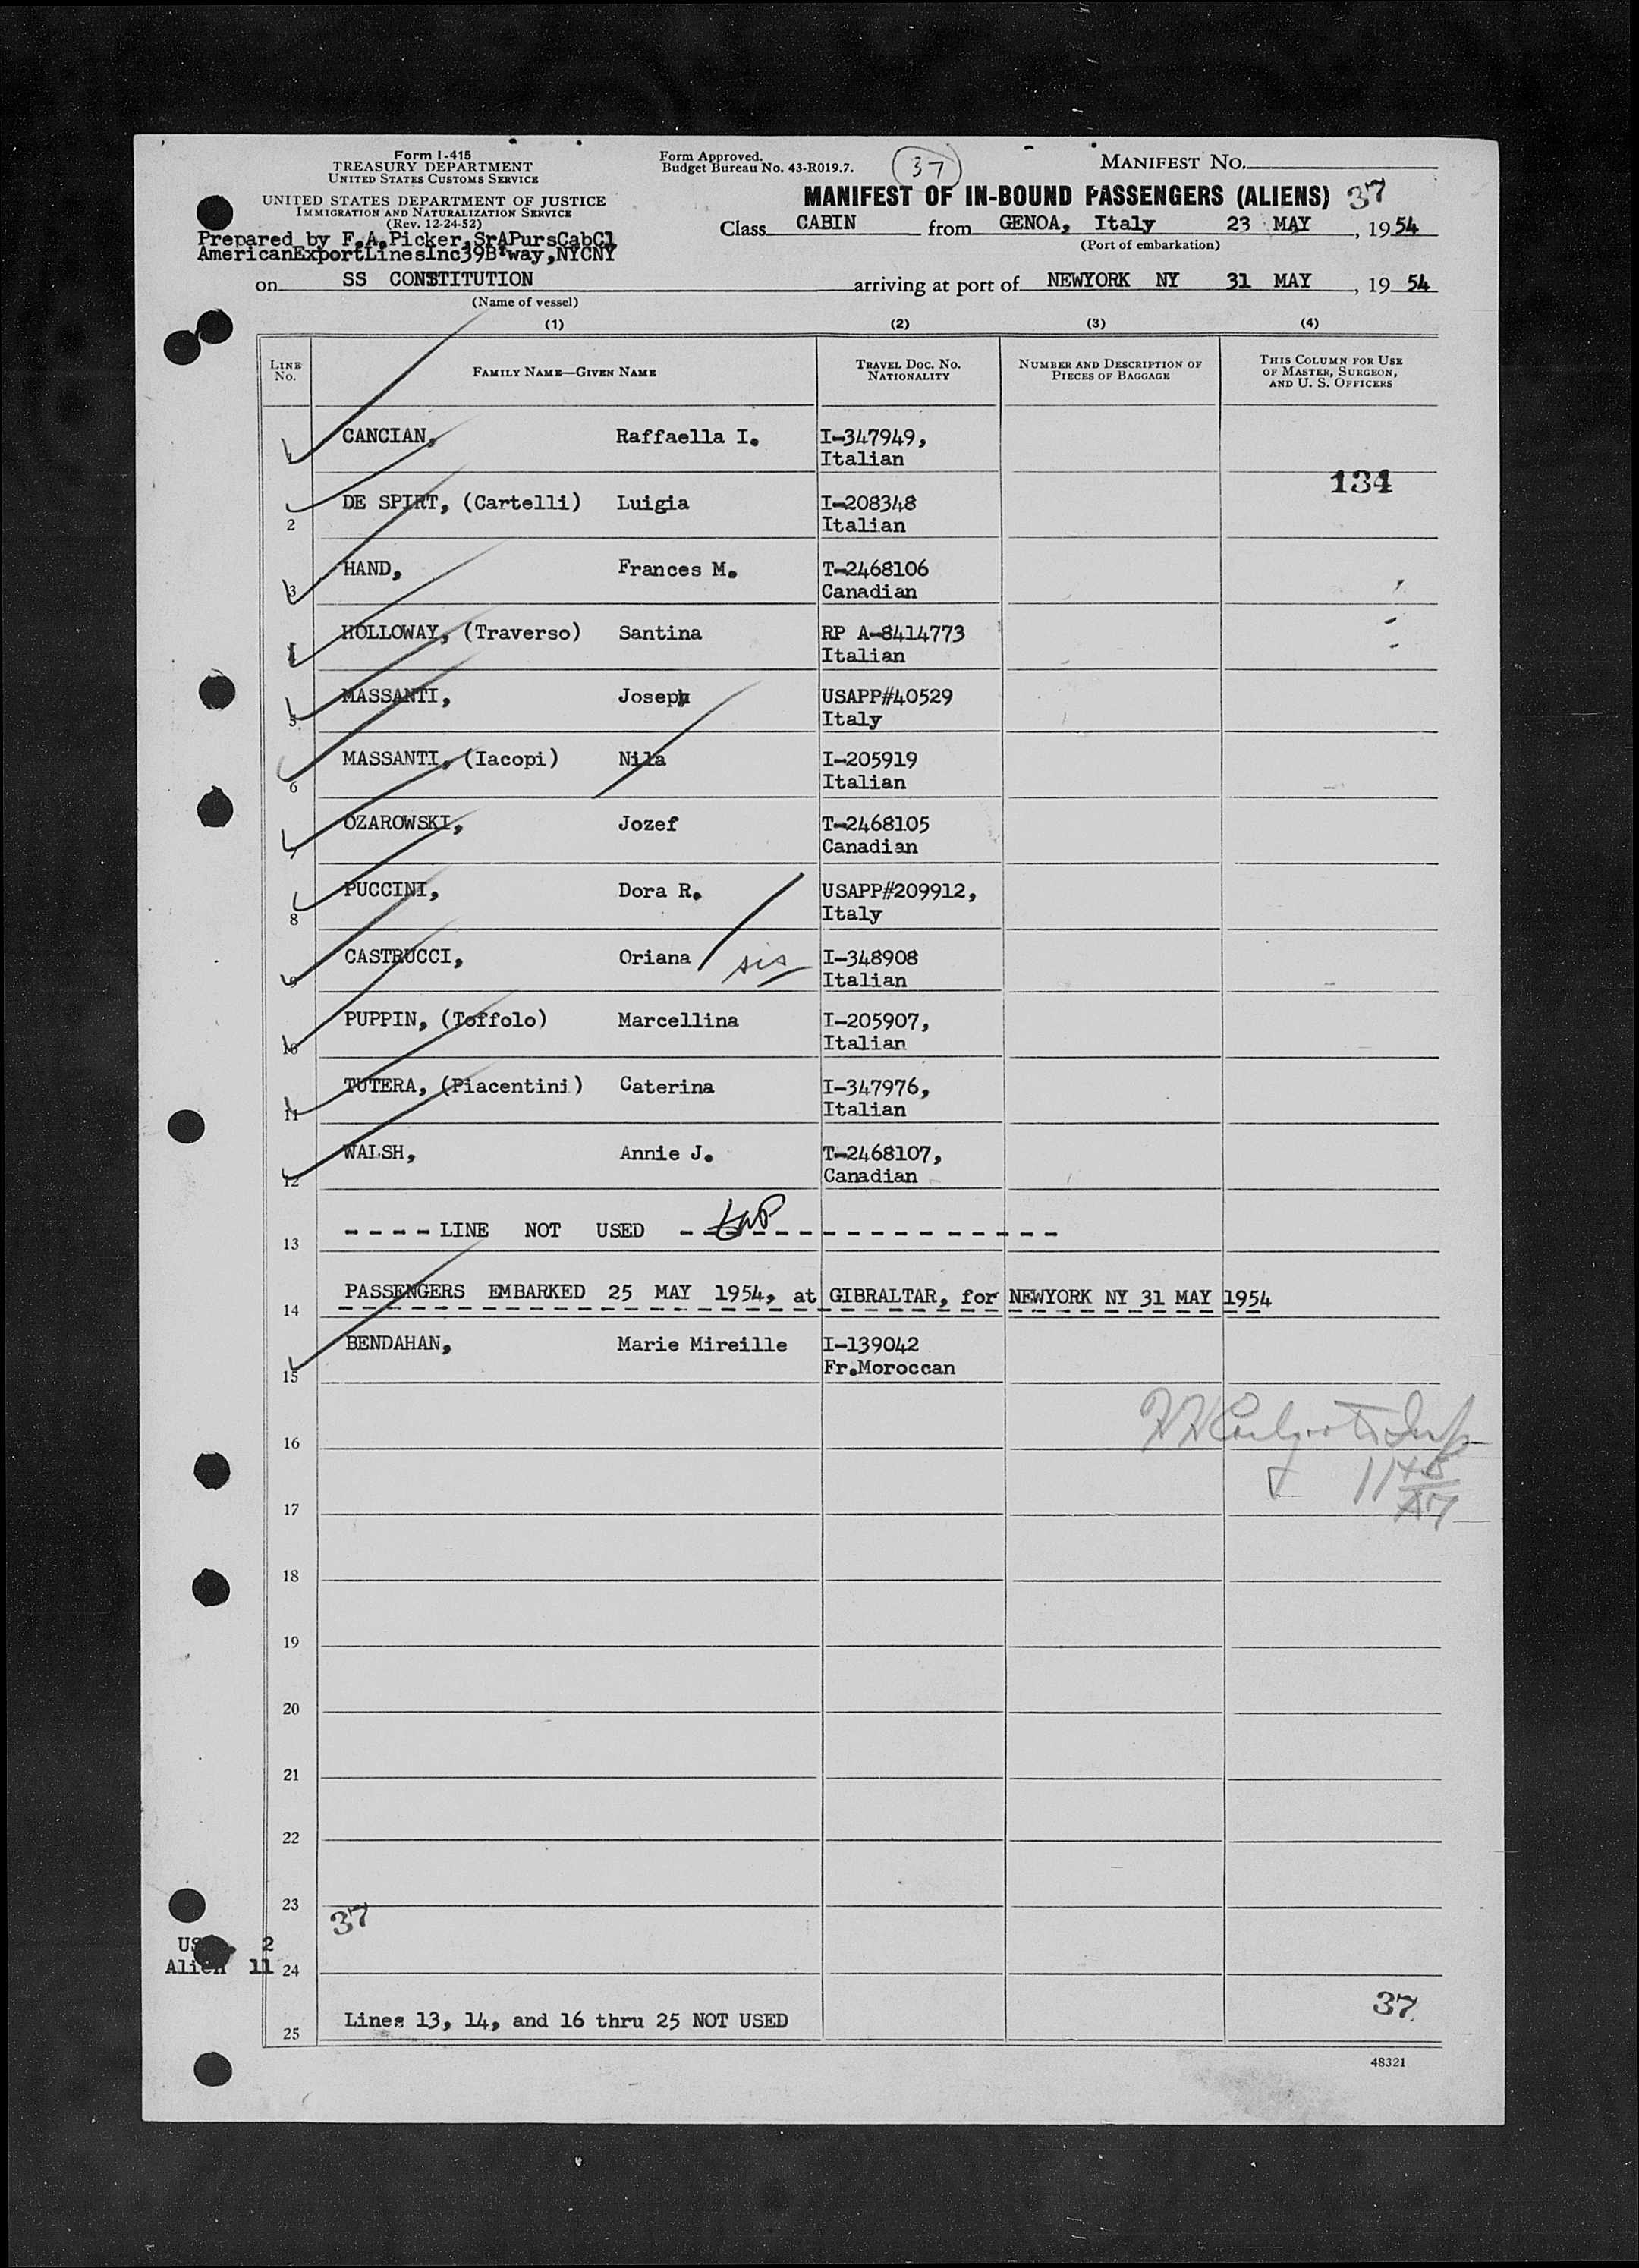 Form I-415
TREASURY DEPARTMENT
UNITED STATES CUSTOMS SERVICE
UNITED STATES DEPARTMENT OF JUSTICE
IMMIGRATION AND NATURALIZATION SERVICE
(Rev. 12-24-52)
Prepared by F.A.Picker,SrAPursCabCl
AmericanExportLinesInc39B'way,NYCNY
Form Approved.
Budget Bureau No. 43-R019.7.
37
MANIFEST NO.
MANIFEST OF IN-BOUND PASSENGERS (ALIENS) 37
Class CABIN from GENOA, Italy 23 MAY, 1954
(Port of embarkation)
on SS CONSTITUTION arriving at port of NEWYORK NY 31 MAY, 19 54
(Name of vessel)
(1) (2) (3) (4)
LINE NO. FAMILY NAME—GIVEN NAME TRAVEL DOC. NO. NATIONALITY NUMBER AND DESCRIPTION OF PIECES OF BAGGAGE THIS COLUMN FOR USE OF MASTER, SURGEON, AND U. S. OFFICERS
1 CANCIAN, Raffaella I. I-347949,
Italian
134
2 DE SPIRT, (Cartelli) Luigia I-208348
Italian
3 HAND, Frances M. T-2468106
Canadian
4 HOLLOWAY, (Traverso) Santina RP A-8414773
Italian
5 MASSANTI, Joseph USAPP#40529
Italy
6 MASSANTI, (Iacopi) Nila I-205919
Italian
7 OZAROWSKI, Jozef T-2468105
Canadian
8 PUCCINI, Dora R. USAPP#209912,
Italy
9 CASTRUCCI, Oriana sis I-348908
Italian
10 PUPPIN, (Toffolo) Marcellina I-205907,
Italian
11 TUTERA, (Piacentini) Caterina I-347976,
Italian
12 WALSH, Annie J. T-2468107,
Canadian
13 ---- LINE NOT USED ----------------
14 PASSENGERS EMBARKED 25 MAY 1954, at GIBRALTAR, for NEWYORK NY 31 MAY 1954
15 BENDAHAN, Marie Mireille I-139042
Fr.Moroccan
16
17
18
19
20
21
22
23
37
2
Alien 11
24
37
25 Lines 13, 14, and 16 thru 25 NOT USED
48321